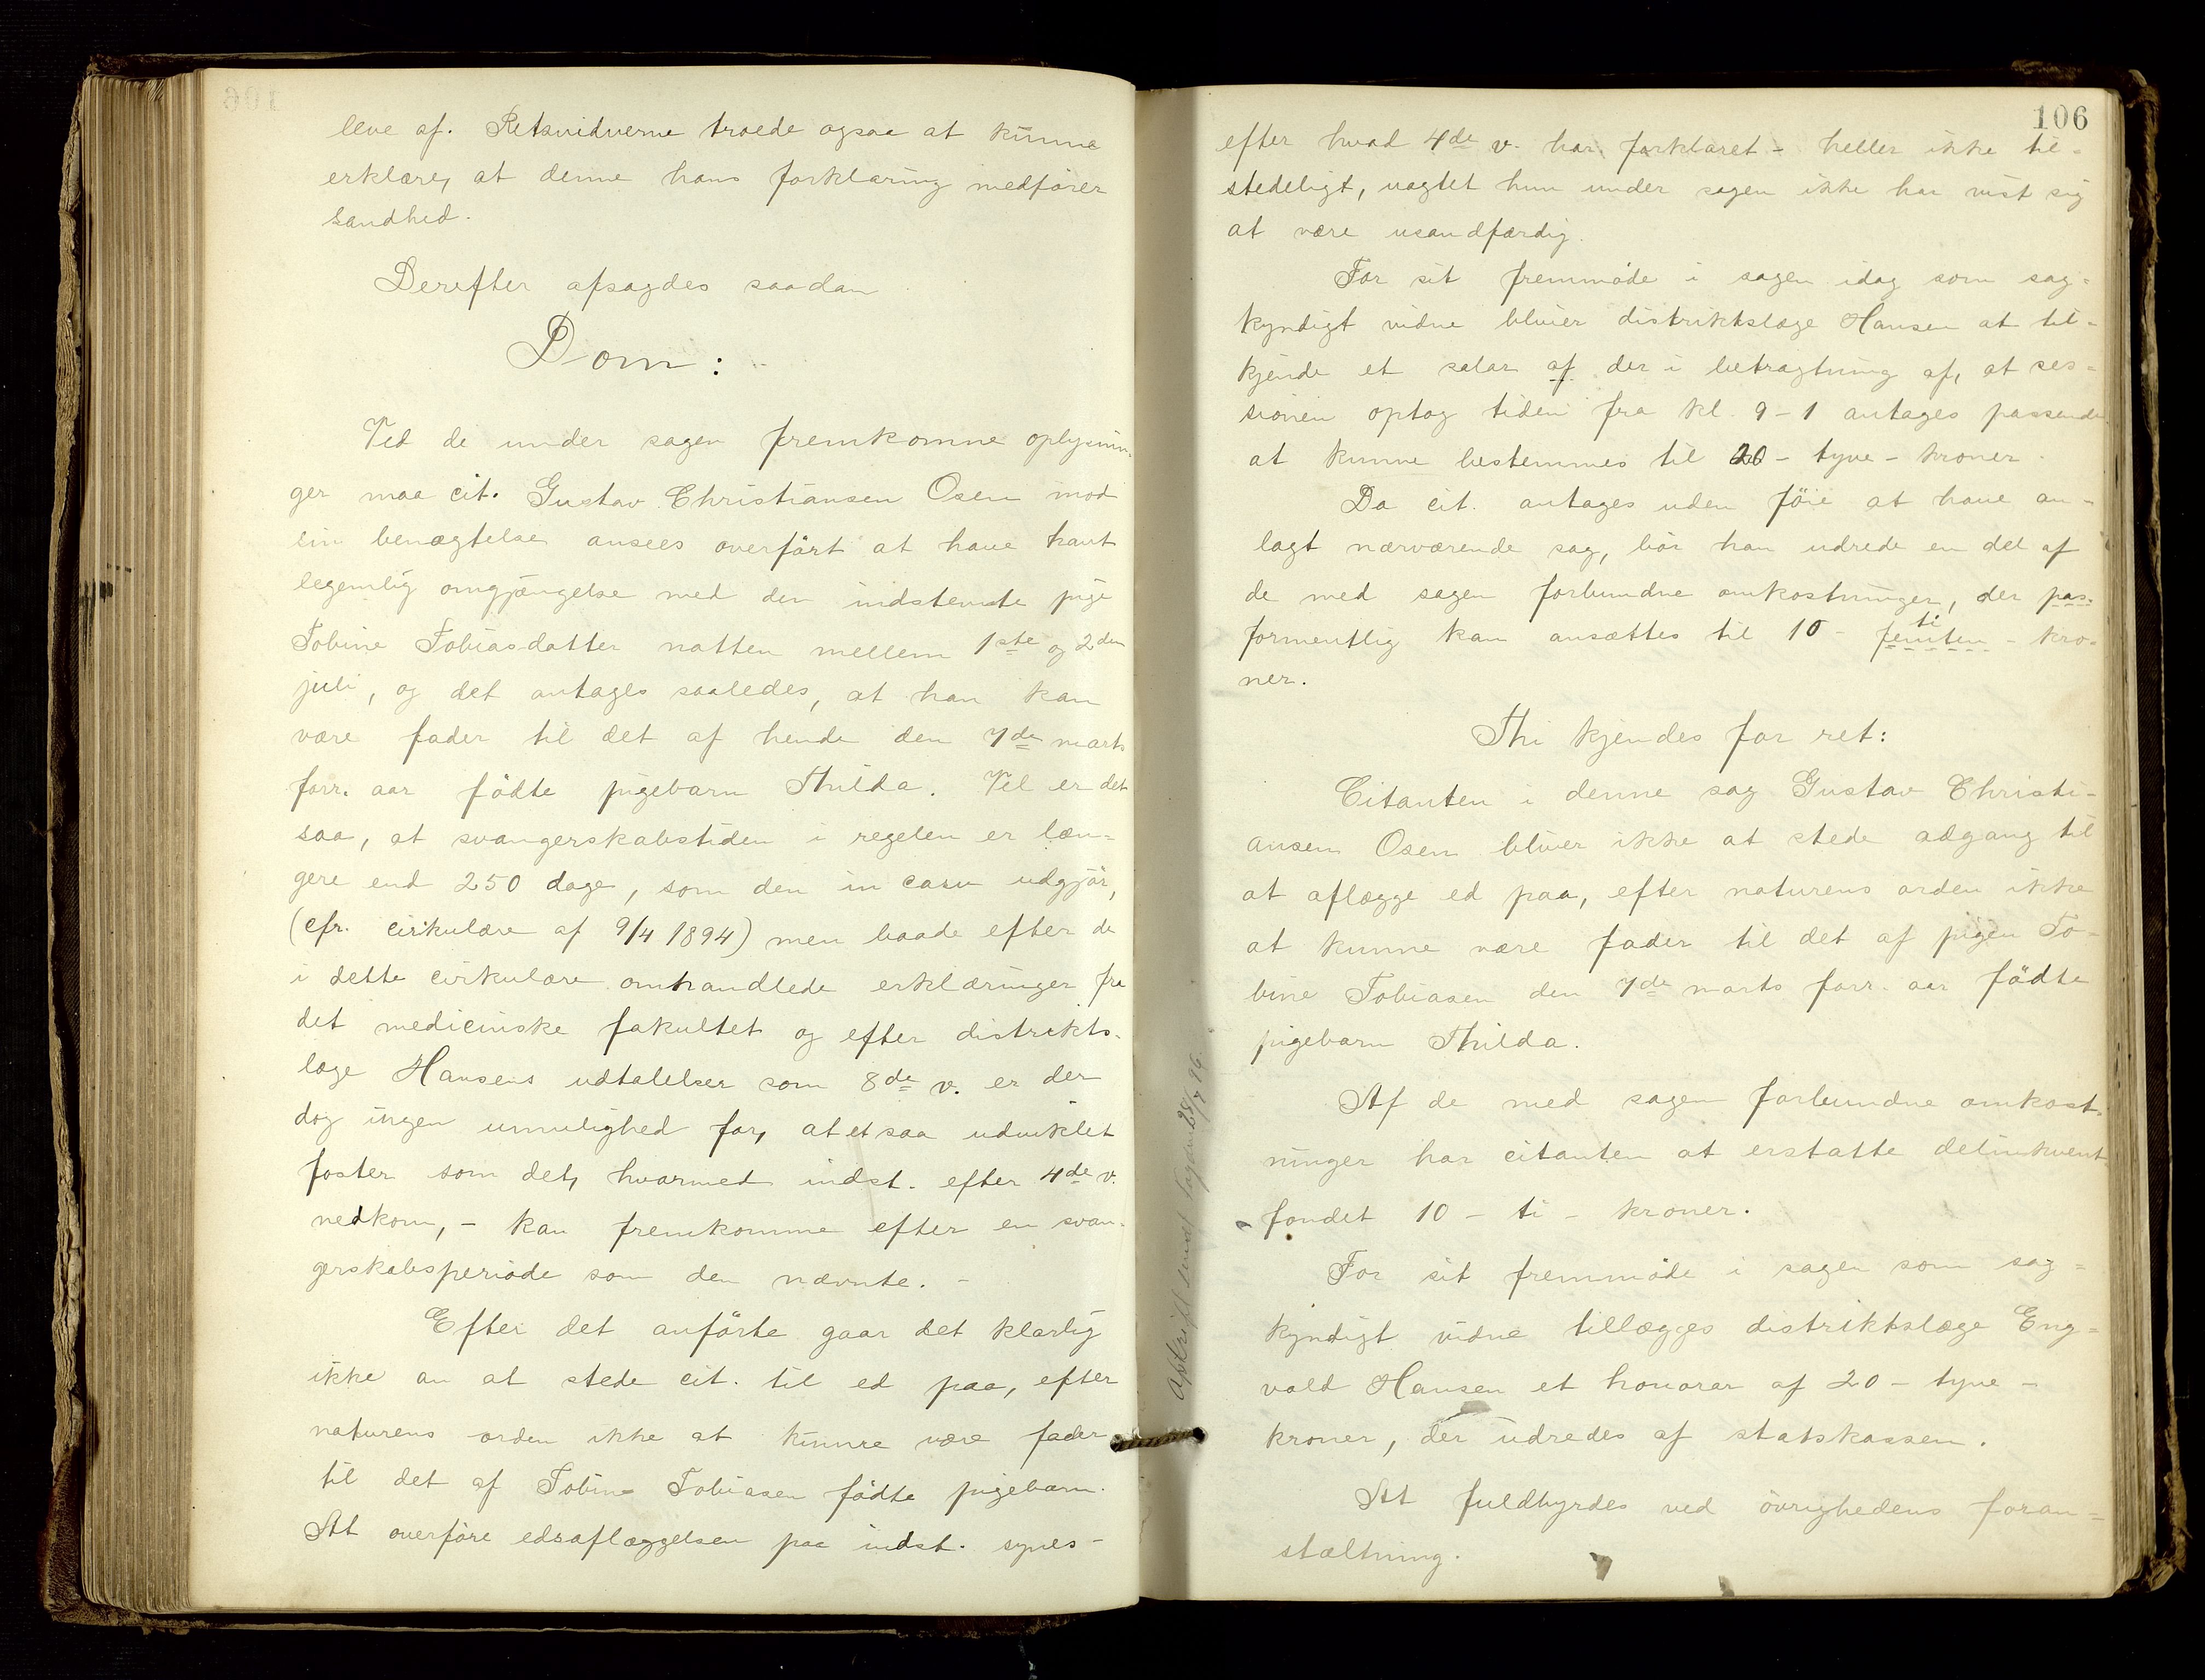 leve af. Retsvidnerne troede ogsaa at kunne
erklære, at denne hans forklaring medfører
sandhed.
Derefter afsagdes saadan
Dom:
Ved de under sagen fremkomne oplysnin-
ger maa cit. Gustav Christiansen Osen mod
sin benægtelse ansees overført at have havt
legemlig omgjængelse med den indstevnte pige
Tobine Tobiasdatter natten mellem 1ste og 2den
juli, og det antages saaledes, at han kan
være fader til det af hende den 7de marts
forr. aar fødte pigebarn Thilda. Vel er det
saa, at svangerskabstiden i regelen er læn-
gere end 250 dage, som den in casu udgjør,
(cfr. cirkulære af 9/4 1894) men baade efter de
i dette cirkulære omhandlede erklæringer fra
det medicinske fakultet og efter distrikts-
læge Hansens udtalelser som 8de v. er der
dog ingen umulighed for, at et saa udviklet
foster som det, hvormed indst. efter 4de v.
nedkom, - kan fremkomme efter en svan-
gerskabsperiode som den nævnte. -
Efter det anførte gaar det klarlig
ikke an at stede cit. til ed paa, efter
naturens orden ikke at kunne være fader
til det af Tobine Tobiasen fødte pigebarn.
At overføre edsaflæggelsen paa indst. synes -
106
efter hvad 4de v. har forklaret - heller ikke til-
stedeligt, uagtet hun under sagen ikke har vist sig
at være usandfærdig.
For sit fremmøde i sagen idag som sag-
kyndigt vidne bliver distriktslæge Hansen at til-
kjende et salar af der i betragtning af, at ses-
sionen optog tiden fra kl. 9-1 antages passende
at kunne bestemmes til 20 - tyve - kroner.
Da cit. antages uden føie at have an-
lagt nærværende sag, bør han udrede en del af
de med sagen forbundne omkostninger, der pas.
formentlig kan ansættes til 10 - femten ti - kro-
ner.
Thi kjendes for ret:
Citanten i denne sag Gustav Christi-
ansen Osen bliver ikke at stede adgang til
at aflægge ed paa, efter naturens orden ikke
at kunne være fader til det af pigen To-
bine Tobiasen den 7de marts forr. aar fødte
pigebarn Thilda.
Af de med sagen forbundne omkost-
ninger har citanten at erstatte delinkvent-
fondet 10 - ti - kroner.
For sit fremmøde i sagen som sag-
kyndigt vidne tillægges distriktslæge Eng-
vald Hansen et honorar af 20 - tyve -
kroner, der udredes af statskassen.
At fuldbyrdes ved øvrighedens foran-
staltning.
Afskrift sendt